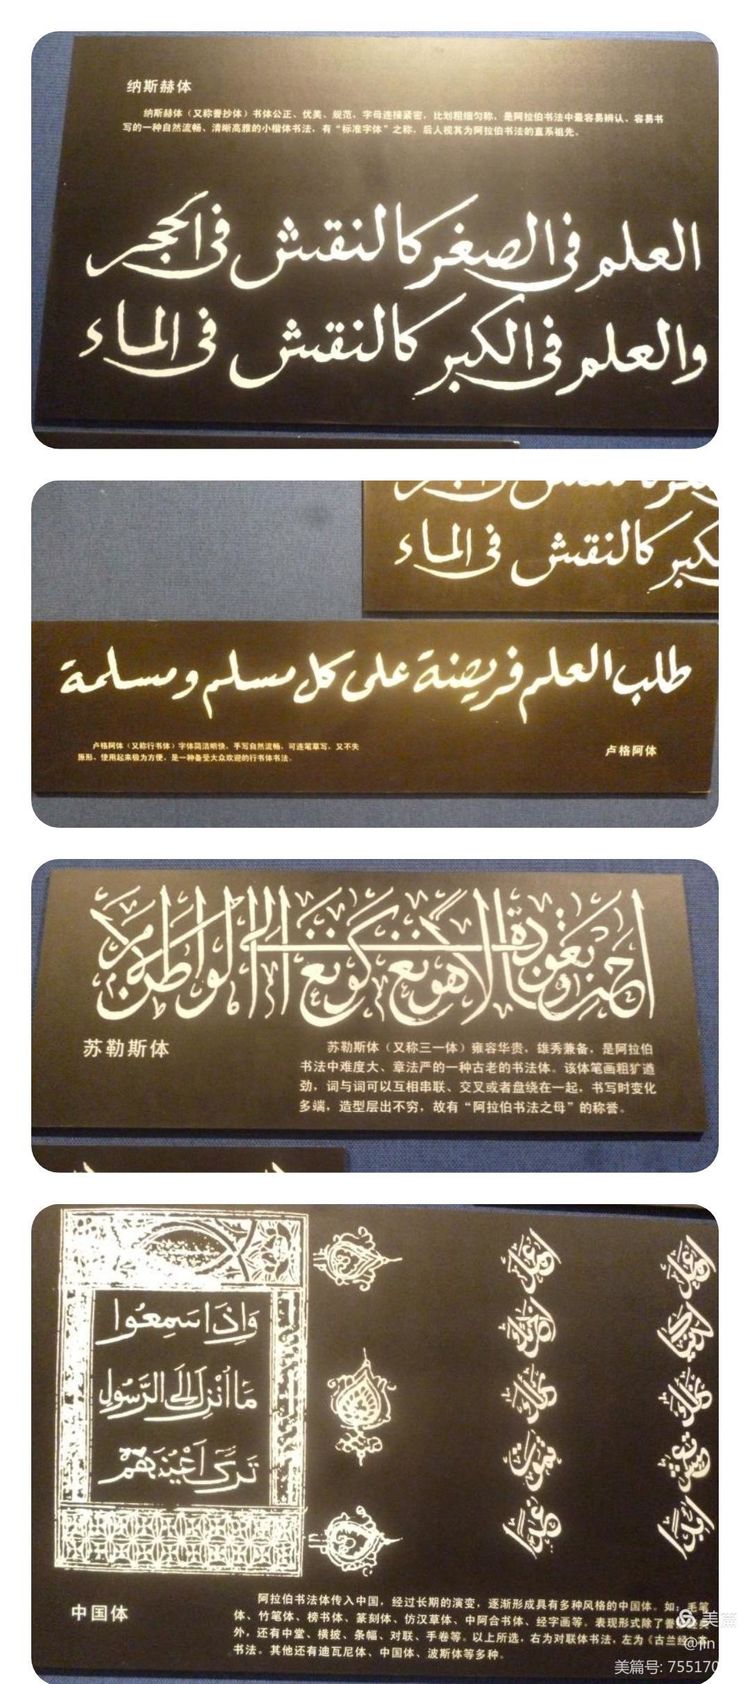 纳斯赫体
纳斯赫体（又称誊抄体）书体公正、优美、规范，字母连接紧密，比划粗细匀称，是阿拉伯书法中最容易辨认、容易书
写的一种自然流畅、清晰高雅的小楷体书法，有“标准字体”之称，后人视其为阿拉伯书法的直系祖先。
العلم في الصغر كالنقش في الحجر
والعلم في الكبر كالنقش في الماء
كالنقش في الماء
طلب العلم فريضة على كل مسلم ومسلمة
卢格阿体（又称行书体）字体简洁明快，手写自然流畅，可连笔草写，又不失
原形，使用起来极为方便，是一种备受大众欢迎的行书体书法。
卢格阿体
苏勒斯体
苏勒斯体（又称三一体）雍容华贵，雄秀兼备，是阿拉伯
书法中难度大、章法严的一种古老的书法体。该体笔画粗犷遒
劲，词与词可以互相串联、交叉或者盘绕在一起，书写时变化
多端，造型层出不穷，故有“阿拉伯书法之母”的称誉。
وَإِذَا سَمِعُوا
مَا أُنْزِلَ إِلَى الرَّسُولِ
تَرَى أَعْيُنَهُمْ
中国体
阿拉伯书法体传入中国，经过长期的演变，逐渐形成具有多种风格的中国体。如：毛笔
体、竹笔体、榜书体、篆刻体、仿汉草体、中阿合书体、经字画等。表现形式除了
外，还有中堂、横披、条幅、对联、手卷等。以上所选，右为对联体书法，左为《古兰经》
书法。其他还有迪瓦尼体、中国体、波斯体等多种。
美篇
@jin
美篇号: 755170